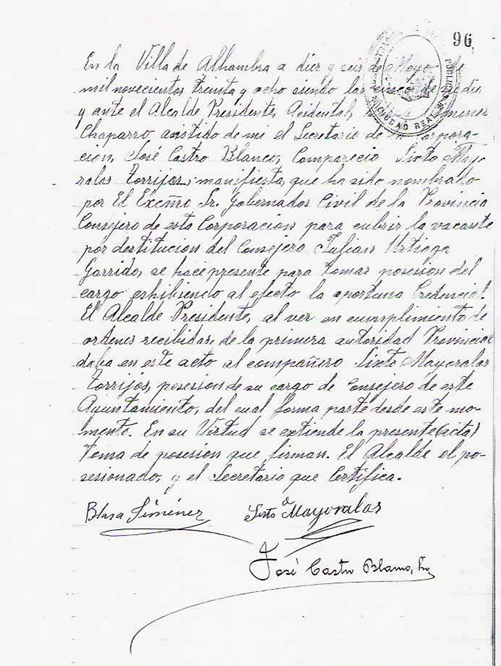 96
En la Villa de Alhambra a diez y seis de Mayo de
mil novecientos treinta y ocho siendo las cinco
y ante el Alcalde Presidente, Acidental,
Chaparro asistido de mi el Secretario de la Corpora-
cion, José Castro Blanco, Comparecio Sixto Mayo-
rales Torrijos, manifiesta, que ha sido nombrado
por El Excmo Sr. Gobernador Civil de la Provincia
Consejero de esta Corporacion para cubrir la vacante
por destitucion del Consejero Julian
Garrido, se hace presente para tomar posesion del
cargo exhibiendo al efecto la oportuna Credencial.
El Alcalde Presidente, al ver en cumplimiento de
ordenes recibidas, de la primera autoridad Provincial
daba en este acto al compañero Sixto Mayorales
Torrijos, posesion de su cargo de Consejero de este
Ayuntamiento, del cual forma parte desde este mo-
mento. En su Virtud se extiende la presente (acta)
Toma de posesion que firman. El Alcalde el po-
sesionado, y el Secretario que Certifica.
Blasa Siménez Sixto Mayorales
José Castro Blanco